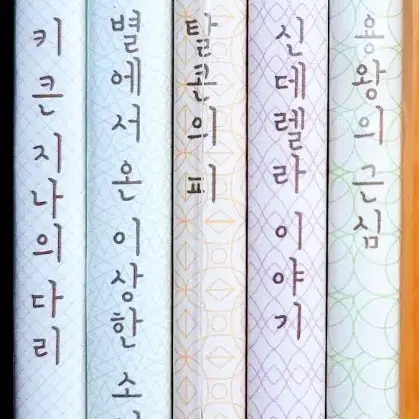 키 큰 지나의 다리
별에서 온 이상한 소
탈콘의 피
신데렐라 이야기
용왕의 근심